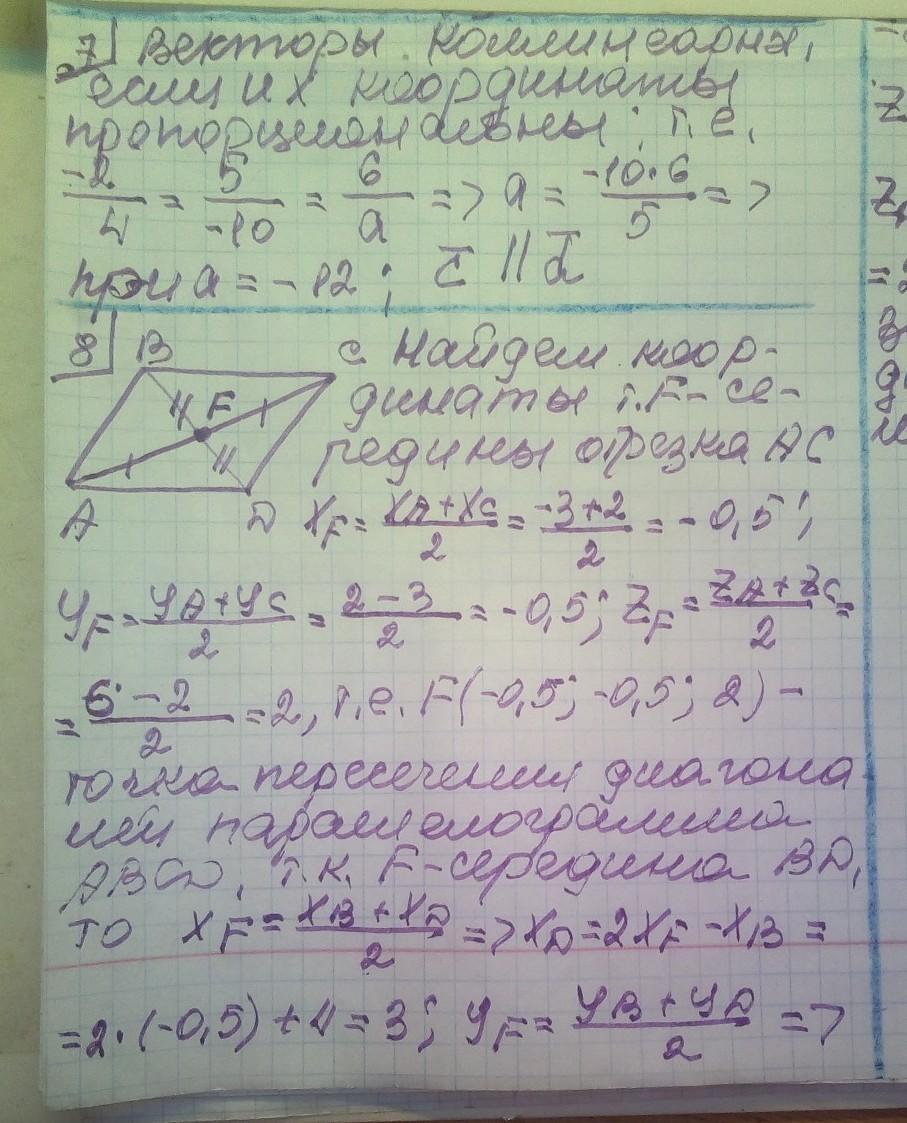 7 Векторы коллинеарны,
если их координаты
пропорциональны, т.е.
-2/4 = 5/-10 = 6/a => a = -10·6/5 =>
при a = -12; c̄ || d̄
8 B C Найдем коор-
F динаты т. F - се-
редины отрезка AC
A D X_F = X_A + X_C/2 = -3+2/2 = -0,5;
y_F = y_A + y_C/2 = 2-3/2 = -0,5; Z_F = Z_A + Z_C/2 =
= 6-2/2 = 2, т.е. F(-0,5; -0,5; 2) -
точка пересечения диагона
лей параллелограмма
ABCD, т.к. F-середина BD,
то X_F = X_B + X_D/2 => X_D = 2X_F - X_B =
= 2·(-0,5) + 4 = 3; y_F = y_B + y_D/2 =>